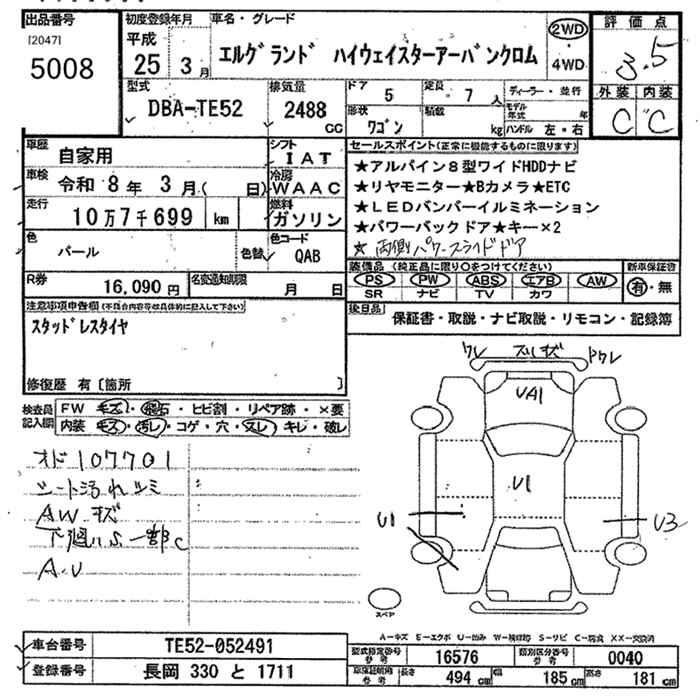 出品番号 初度登録年月 車名・グレード 評価点
[2047] 平成 エルグランド ハイウェイスターアーバンクロム 2WD・4WD 3.5
5008 25 3月
型式 排気量 ドア 5 定員 7人 ディーラー・並行 外装 内装
DBA-TE52 2488cc 形状 ワゴン 積載 kg モデル年式 年 ハンドル 左・右 C C
車歴 自家用 シフト IAT セールスポイント(正常に機能するものに限ります)
車検 令和8年3月(日) 冷房 WAAC ★アルパイン8型ワイドHDDナビ
★リヤモニター★Bカメラ★ETC
走行 10万7千699km 燃料 ガソリン ★LEDバンパーイルミネーション
★パワーバックドア★キー×2
色 パール 色替 色コード QAB ★両側パワースライドドア
R券 16,090円 名変通知期限 月 日 装備品(純正品に限り○をつけてください) 新車保証書
PS PW ABS エアB AW 有・無
SR ナビ TV カワ
注意事項申告欄(不具合内容等は具体的に記入して下さい) 後日品 保証書・取説・ナビ取説・リモコン・記録簿
スタッドレスタイヤ
修復歴 有〔箇所 〕
検査員記入欄 FW キズ・飛石・ヒビ割・リペア跡・×要
内装 キズ・汚レ・コゲ・穴・スレ・キレ・破レ
ワレ スレキズ ワレ
UA1
オド107701
シート汚れシミ U1
AWキズ U1 U3
下廻りS一部C
A.U
スペア
A-キズ E-エクボ U-凹み W-補修跡 S-サビ C-腐食 XX-交換済
車台番号 TE52-052491 型式指定番号 参考 16576 類別区分番号 参考 0040
登録番号 長岡 330 と 1711 車庫証明用 参考 長さ 494cm 幅 185cm 高さ 181cm